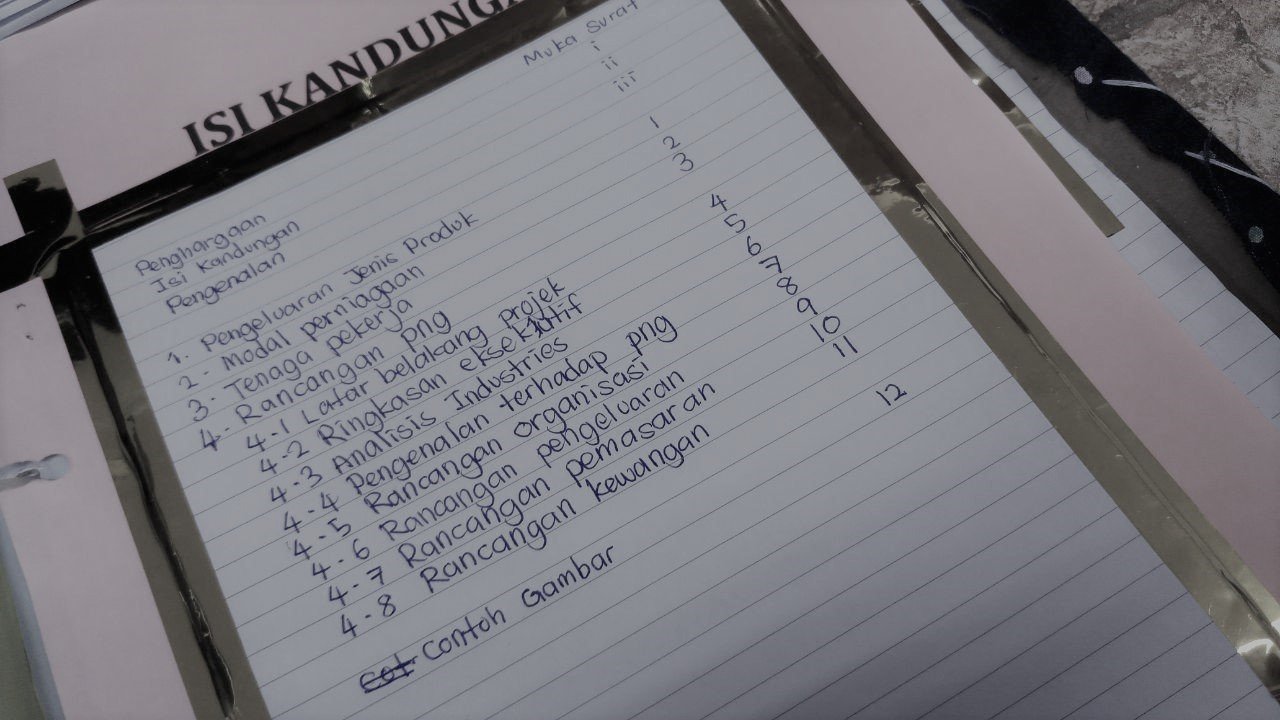 ISI KANDUNGA
Muka Surat
Penghargaan i
Isi Kandungan ii
Pengenalan iii
1. Pengeluaran Jenis Produk 1
2. Modal perniagaan 2
3. Tenaga pekerja 3
4. Rancangan png
4-1 Latar belakang projek 4
4-2 Ringkasan eksekutif 5
4-3 Analisis Industries 6
4-4 Pengenalan terhadap png 7
4-5 Rancangan organisasi 8
4-6 Rancangan pengeluaran 9
4-7 Rancangan pemasaran 10
4-8 Rancangan kewangan 11
Contoh Gambar 12